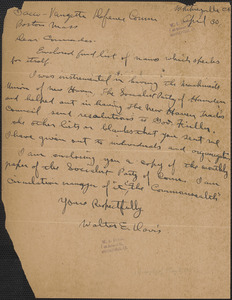 April 30
Sacco-Vanzetti Defense Comm
Boston Mass
Dear Comrades:
Enclosed find list of names which speaks
for itself.
I was instrumental in having the
Union of New Haven, The Socialist Party of Hamden
and helped out in having The New Haven Trades
Council send resolutions to Gov. Fuller,
the other lists or blanks that you sent me
I have given out to individuals and organizations
I am enclosing you a copy of the monthly
paper of the Socialist Party of Conn. I am
circulation manager of it, "The Commonwealth"
Yours Respectfully
Walter E. Davis